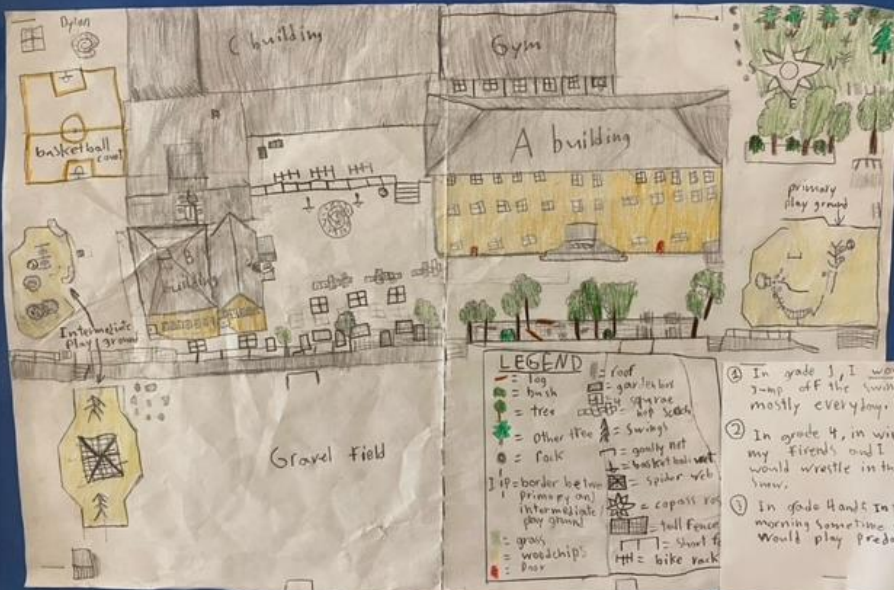 Dylan
C building
Gym
basketball
court
A building
N
E
primary
play ground
B
building
Intermediate
play ground
Gravel Field
LEGEND
= log
= bush
= tree
= other tree
= rock
= border betwe
primary and
intermediate
play ground
= grass
= woodchips
= Door
= roof
= garden box
= 4 squrae
= hop scotch
= Swings
= goally net
= basketball net
= spider web
= copass ros
= tall fence
= short f
= bike rack
① In grade 1, I wou
jump off the swin
mostly everyday.
② In grade 4, in win
my firends and I
would wrestle in th
snow.
③ In gade 4 and 5 In
morning sometime
would play Preda